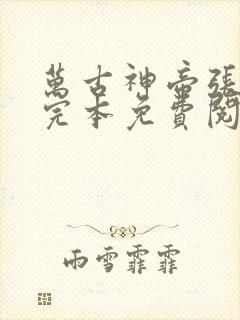 萬古神帝張
完本免費閱
雨雪霏霏